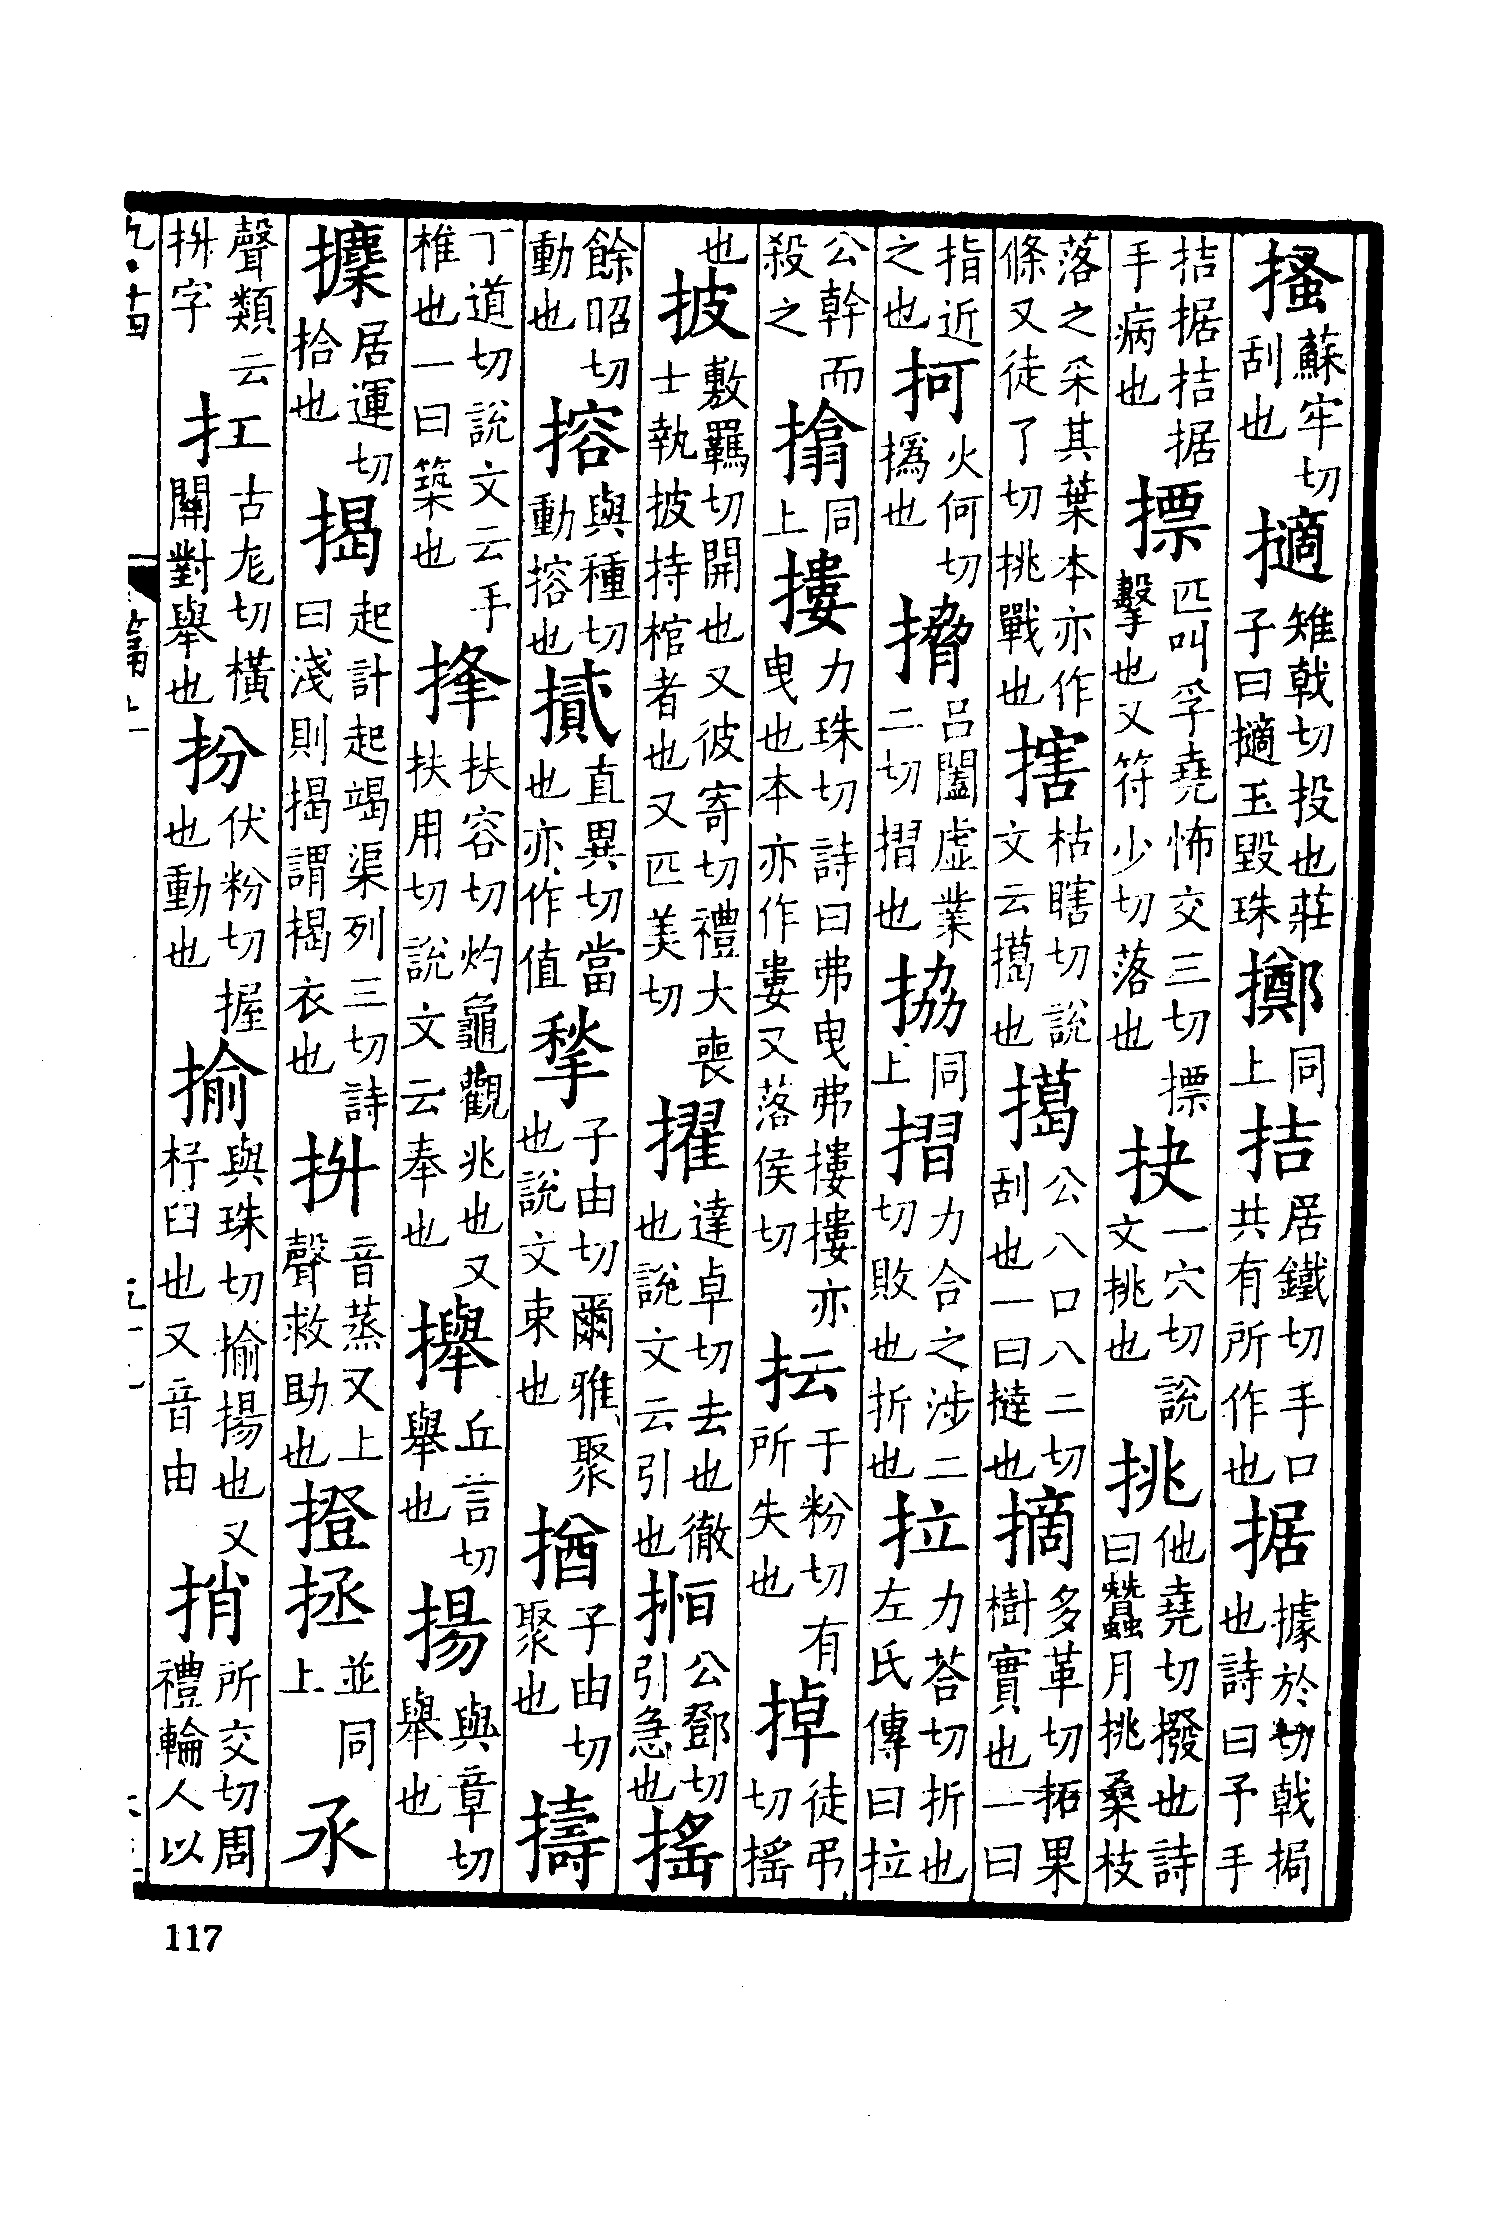 搔蘇牢切刮也擿雉戟切投也莊子曰擿玉毀珠擲同上拮居鐵切手口共有所作也据據於切戟挶也詩曰予手
拮据拮据手病也摽匹叫孚堯怖交三切摽擊也又符少切落也抉一穴切說文挑也挑他堯切撥也詩曰蠶月挑桑枝
落之采其葉本亦作條又徒了切挑戰也搳枯瞎切說文云擖也擖公八口八二切刮也一曰撻也摘多革切拓果樹實也一曰
指近之也抲火何切撝也搚呂闔虛業二切摺也拹同上摺力合之涉二切敗也折也拉力荅切折也左氏傳曰拉
公幹而殺之㩉同上摟力珠切詩曰弗曳弗摟摟亦曳也本亦作婁又落侯切抎于粉切有所失也掉徒弔切搖
也披敷羈切開也又彼寄切禮大喪士執披持棺者也又匹美切擢達卓切去也徹也說文云引也搄公鄧切引急也搖
餘昭切動也搈與種切動搈也直異切當也亦作值揫子由切爾雅聚也說文束也揂子由切聚也擣
丁道切說文云手椎也一曰築也捀扶容切灼龜觀兆也又扶用切說文云奉也攑丘言切舉也揚與章切舉也
攗居運切拾也揭起計起竭渠列三切詩曰淺則揭謂揭衣也抍音蒸又上聲救助也撜拯並同上氶
聲類云抍字扛古尨切橫關對舉也扮伏粉切握也動也揄與珠切揄揚也又杼臼也又音由捎所交切周禮輪人以
117